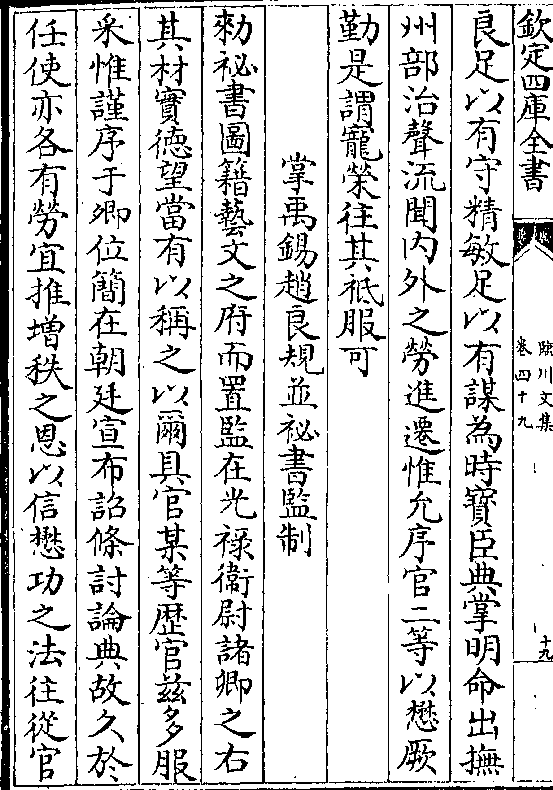 欽定四庫全書
臨川文集
卷四十九
十九
良足以有守精敏足以有謀為時寶臣典掌明命出撫
州部治聲流聞内外之勞進遷惟允序官二等以懋厥
勤是謂寵榮往其祇服可
掌禹錫趙良規並祕書監制
勑祕書圖籍藝文之府而置監在光祿衞尉諸卿之右
其材實徳望當有以稱之以爾具官某等歴官兹多服
采惟謹序于卿位簡在朝廷宣布詔條討論典故久於
任使亦各有勞宜推增秩之恩以信懋功之法往從官